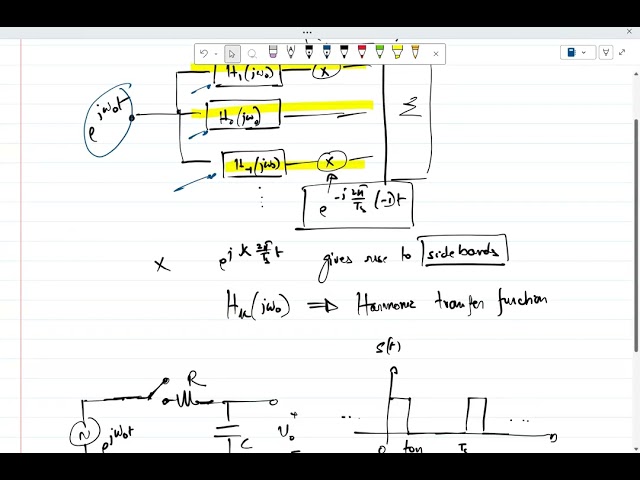 H₁(jω₀) x
e^{jω₀t} H₀(jω₀) Σ
H₋₁(jω₀) x
e^{-j 2π/Ts (-1)t}
x e^{jk 2π/Ts t} gives rise to sidebands
H_k(jω₀) ⇒ Harmonic transfer function
S(t)
R
... ...
e^{jω₀t} C V₀ + -
0 ton Ts